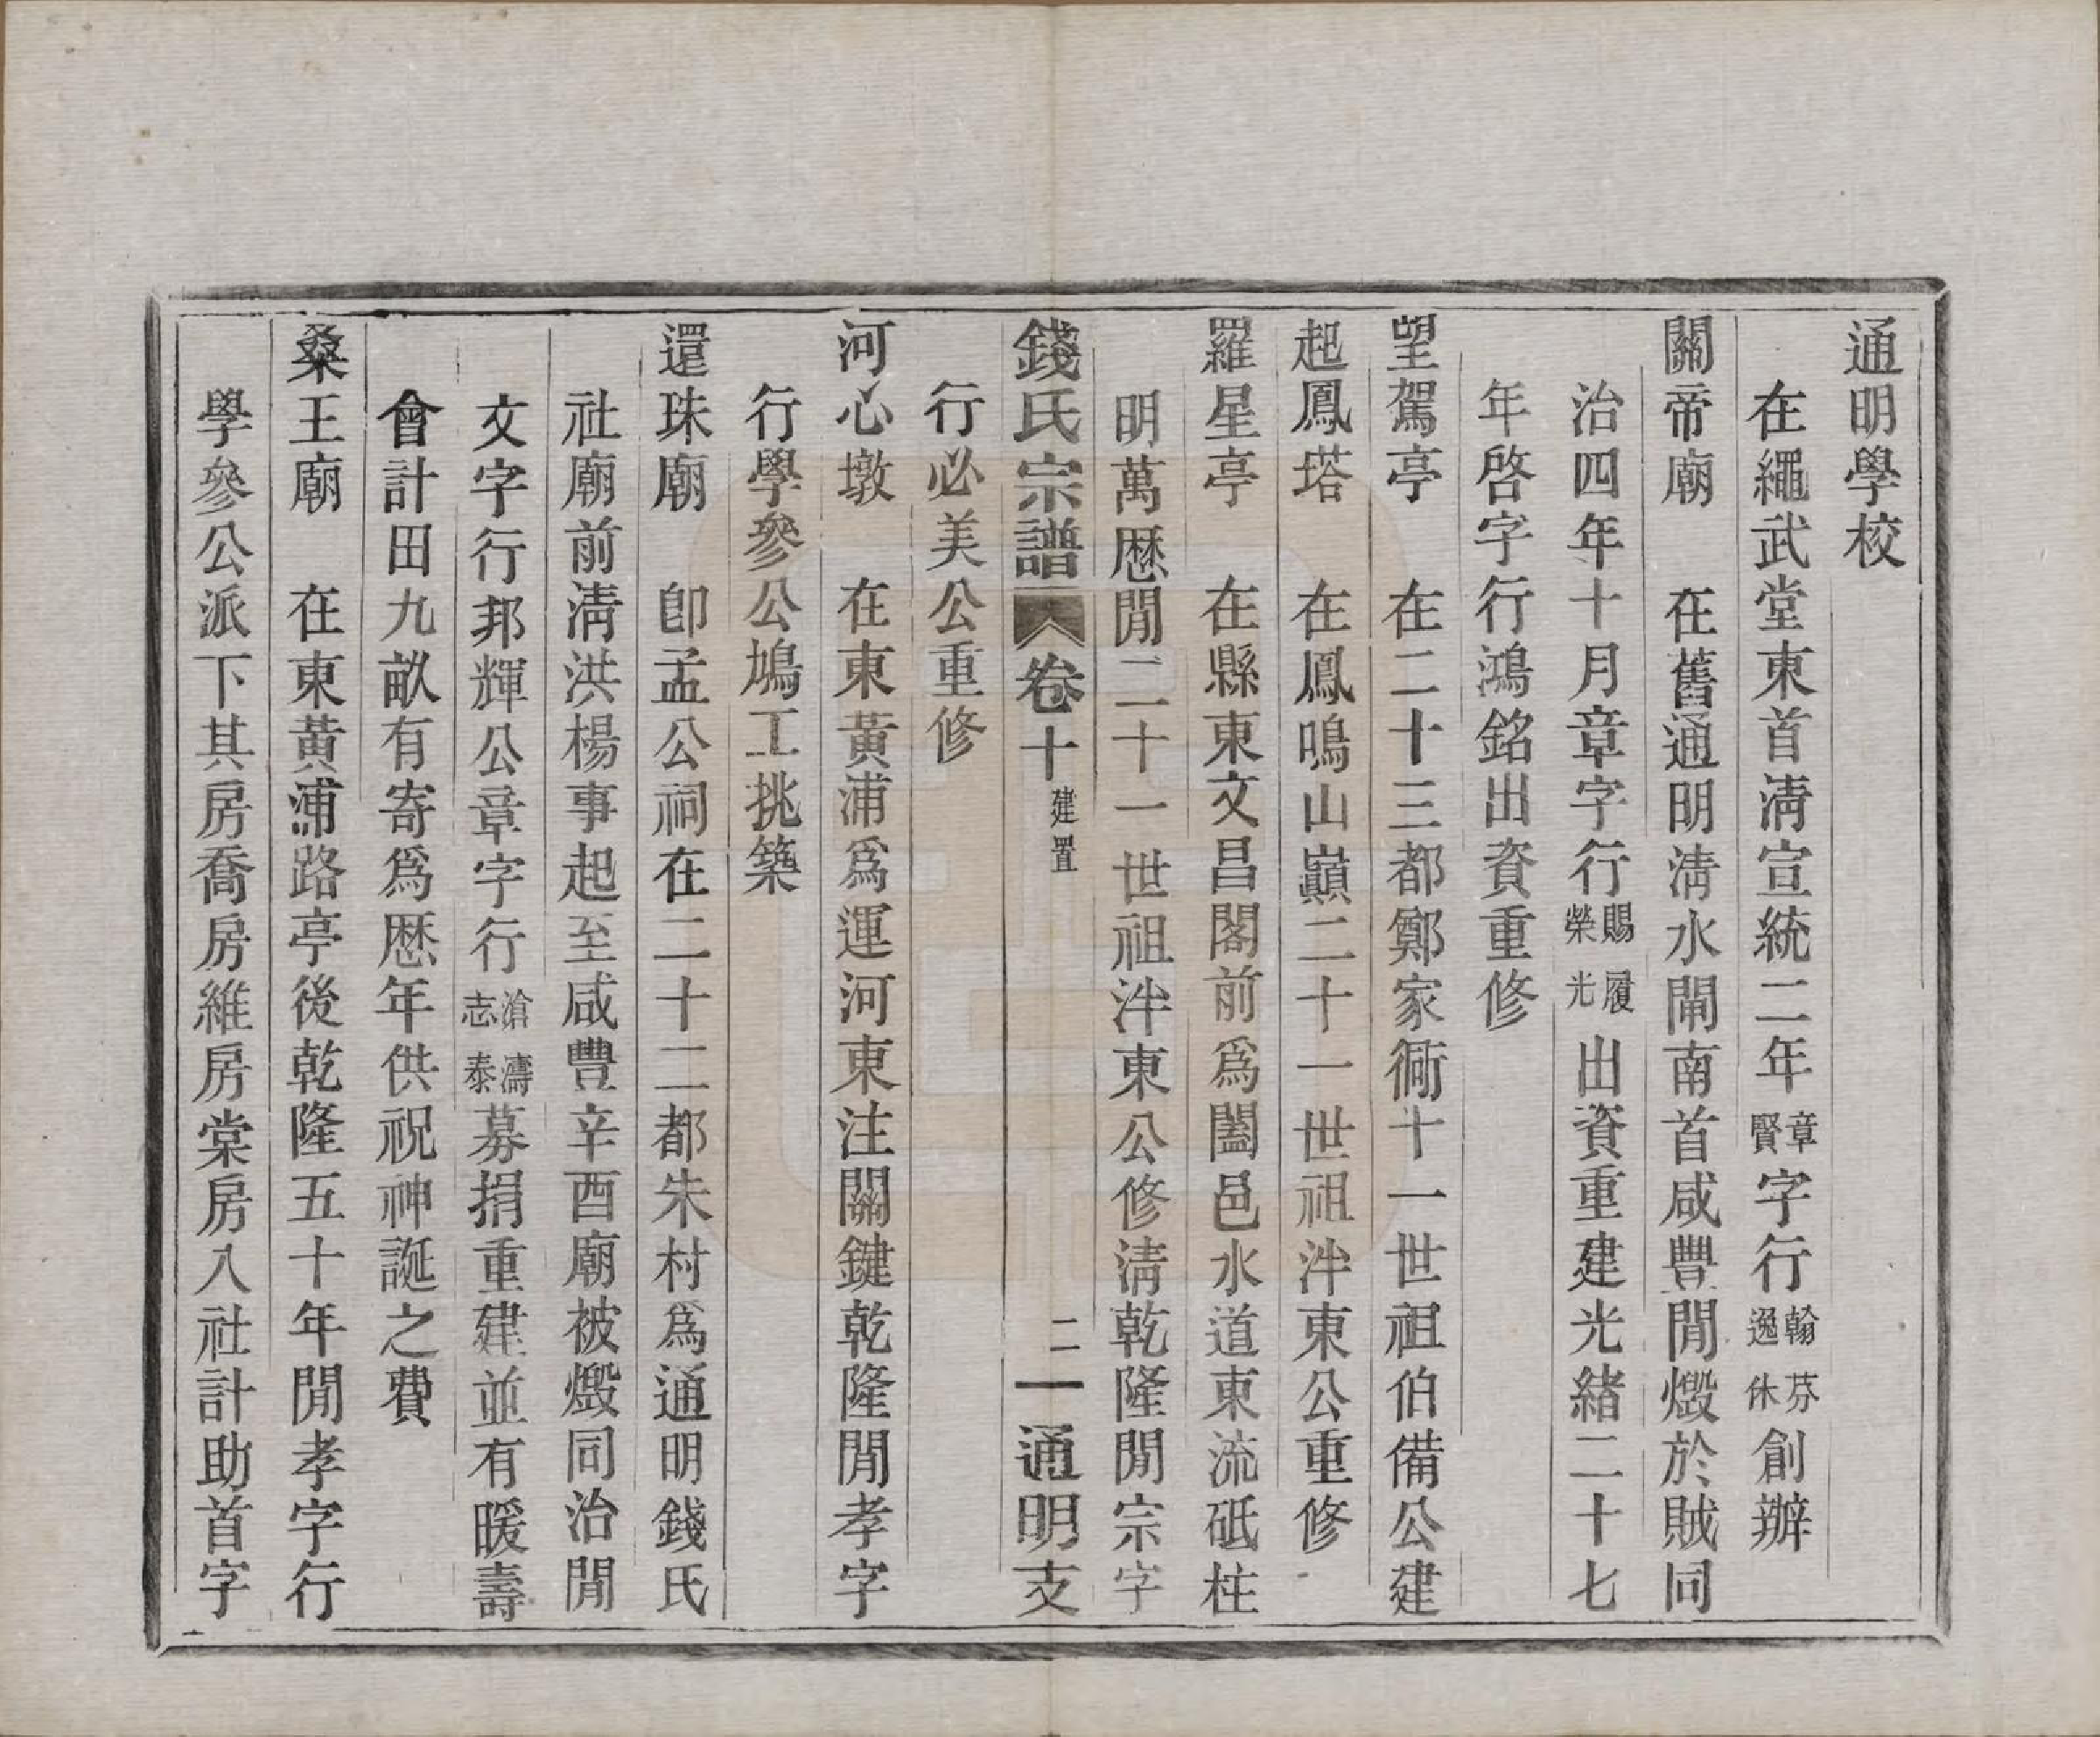 通明學校
在繩武堂東首淸宣統二年章賢字行翰芬逸休創辦
關帝廟　在舊通明淸水閘南首咸豐閒燬於賊同
治四年十月章字行賜履榮光出資重建光緖二十七
年啓字行鴻銘出資重修
望駕亭　在二十三都鄭家衕十一世祖伯備公建
起鳳塔　在鳳鳴山巓二十一世祖泮東公重修
羅星亭　在縣東文昌閣前爲闔邑水道東流砥柱
明萬厯閒二十一世祖泮東公修淸乾隆閒宗字
行必美公重修
錢氏宗譜　卷十　建置　二　通明支
河心墩　在東黃浦爲運河東注關鍵乾隆閒孝字
行學參公鳩工挑築
還珠廟　卽孟公祠在二十二都朱村爲通明錢氏
社廟前淸洪楊事起至咸豐辛酉廟被燬同治閒
文字行邦輝公章字行滄濤志泰募捐重建並有暖壽
會計田九畝有寄爲厯年供祝神誕之費
桑王廟　在東黃浦路亭後乾隆五十年閒孝字行
學參公派下其房喬房維房棠房入社計助首字